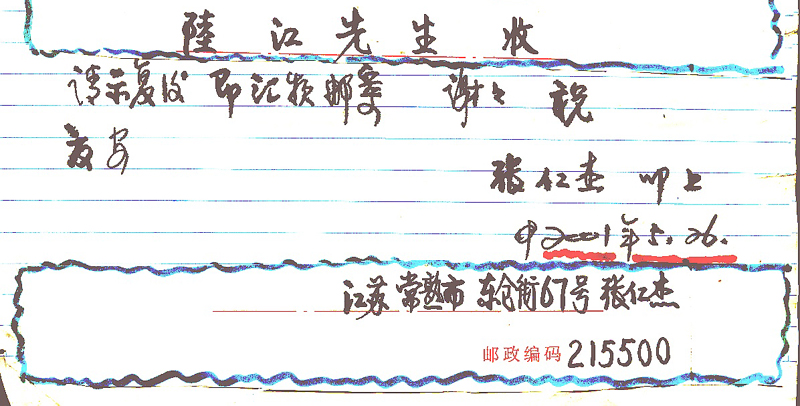 陸江先生收
请示复后 即汇款邮寄 谢々 祝
安
张仁杰 叩上
2001年5.26.
江苏常熟市 东仓街67号 张仁杰
邮政编码 215500